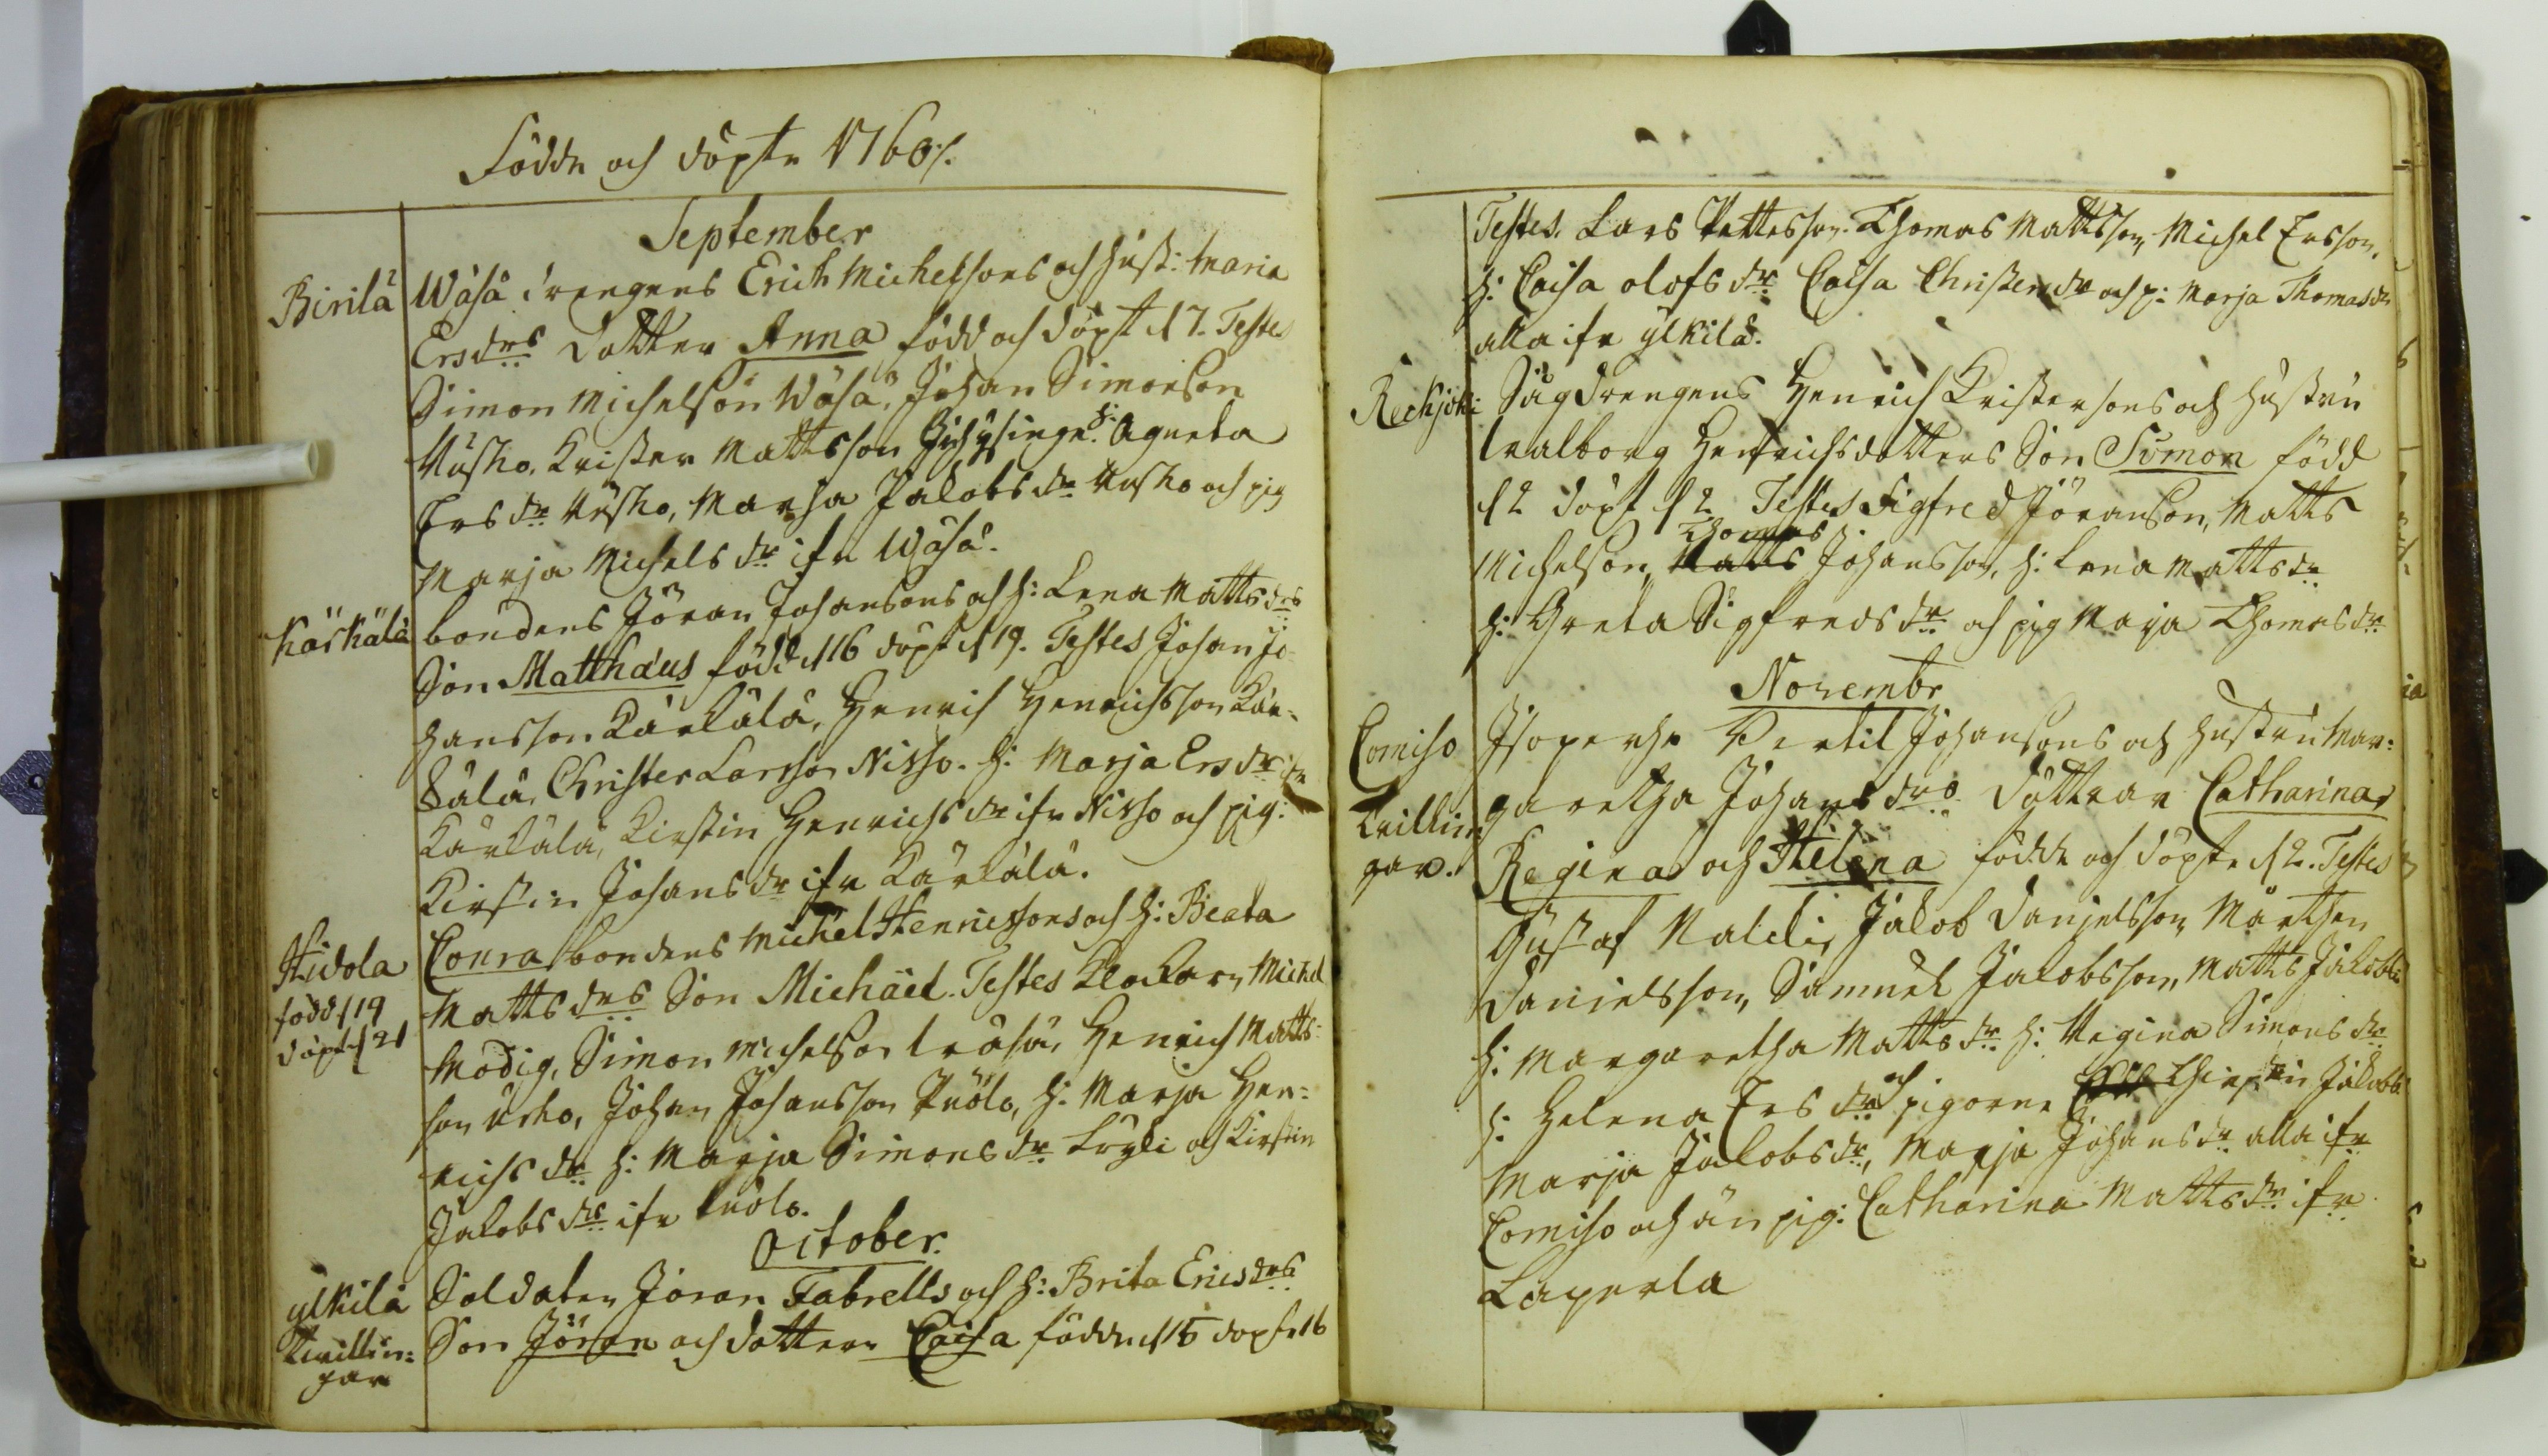 Födde och döpte 1760/.
September
Birilä Wäsä drengens Erich Michelsons och hust: Maria
Ersdrs Dotter Anna född och döpt d 7. Testes
Simon Michelson Wäsä, Johan Simonson
Uusko, Krister Mattsson h: Agneta
Ersdr Uusko, Marja Jakobsdr Uusko och pig
Marja Michelsdr ifr Wäsä.
Kärkälä bondens Jöran Johansons och h: Lena Mattsdrs
Son Matthäus född d 16 döpt d 19. Testes Johan Jo-
hansson Kärkälä, Henrich Henrichsson Kär-
kälä, Christer Larsson Nisso. h: Marja Ersdr ifr
Kärkälä, Kirstin Henrichsdr ifr Nisso och pig:
Kirstin Johansdr ifr Kärkälä.
Hidola Conra bondens Michel Henricssons och h: Beata
född d 19 Mattsdrs Son Michäel. Testes Klockarn Michel
döpt d 21 Modig, Simon Michelson Wäsä, Henrich Matts-
son Usko, Johan Johansson Puolo, h: Marja Hen-
richsdr h: Marja Simonsdr och Kirstin
Jakobsdr ifr Puolo.
October.
ylkilä Soldaten Jöran Fabrells och h: Brita Ericsdrs
Twillin- Son Jöran och dotteren Caisa födde d 15 döpt 16
gar
Testes. Lars Pettersson. Thomas Mattsson, Michel Ersson,
h: Caisa olofsdr Caisa Christersdr och p: Marja Thomasdr
alla ifr ylkilä.
Reckjoki Sågdrengens Henrich Kristersons och hustru
Walborg Henrichsdotters Son Simon född
d 2 döpt d 2 Testes Sigfred Jöranson, Matts
Michelson, Matts Thomas Johansson, h: Lena Mattsdr
h: Greta Sigfredsdr och pig Maja Thomasdr
Novembr
Comiso Bertil Johansons och hustru Mar-
Trillin- garetha Johansdrs döttrar Catharina,
gar. Regina och Helena födde och döpte d 2. Testes
Gustaf Jakob Danjelsson, Mårthen
Danielsson, Samuel Jakobsson, Matts Jakobs
h: Margaretha Mattsdr h: Regina Simonsdr
h: Helena Ersdr och pigorne Chirstin Jakobs
Marja Jakobsdr, Marja Johansdr alla ifr
Comiso och än pig: Catharina Mattsdr ifr
Laperla